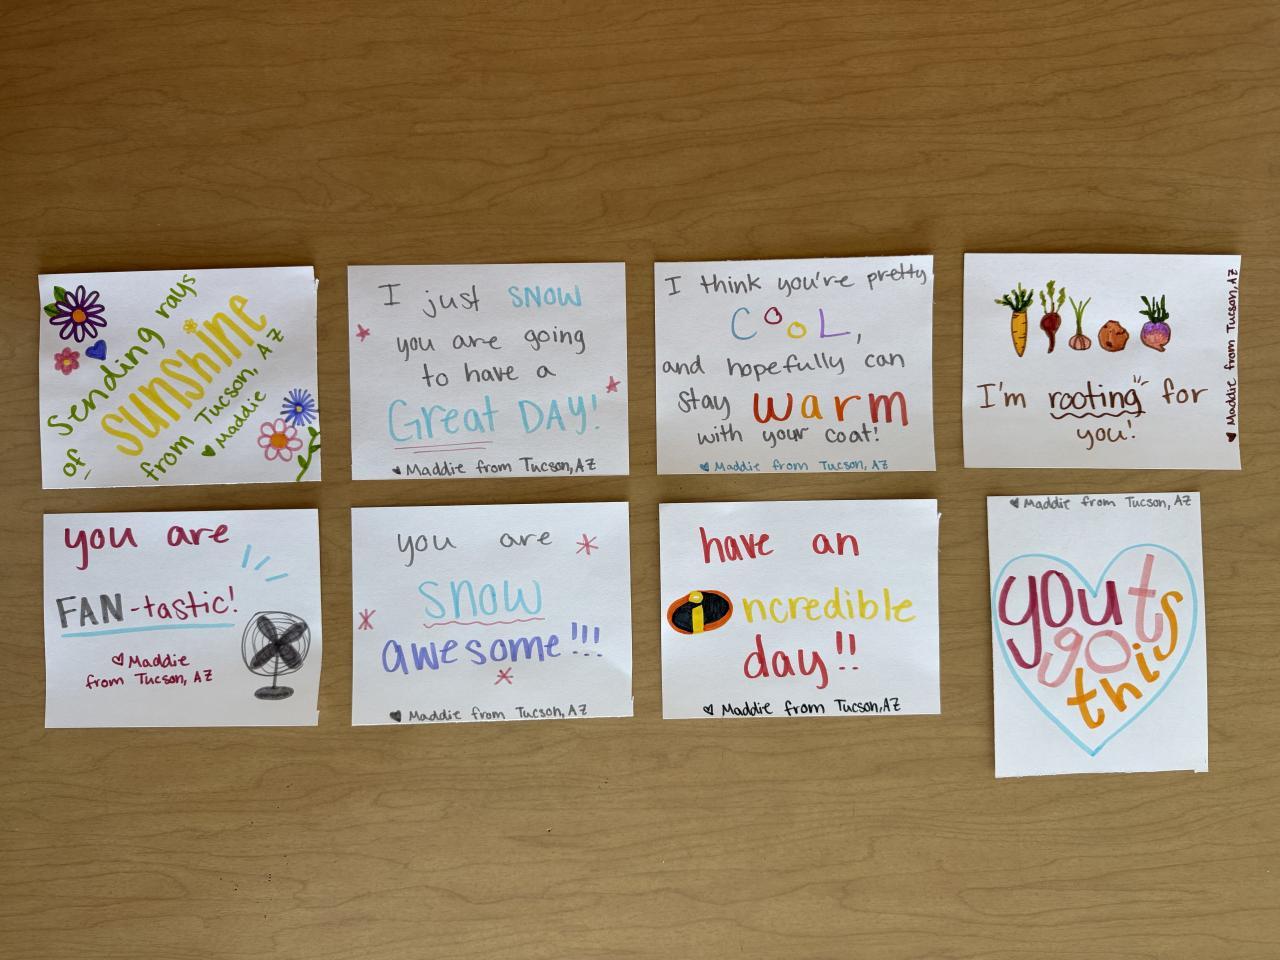 Sending rays
of sunshine
from Tucson, AZ
♥ Maddie
I just SNOW
you are going
to have a
Great DAY!
♥ Maddie from Tucson, AZ
I think you're pretty
COOL,
and hopefully can
stay warm
with your coat!
♥ Maddie from Tucson, AZ
I'm rooting for
you!
♥ Maddie from Tucson, AZ
you are
FAN-tastic!
♡ Maddie
from Tucson, AZ
you are
snow
awesome!!!
♥ Maddie from Tucson, AZ
have an
incredible
day!!
♡ Maddie from Tucson, AZ
♥ Maddie from Tucson, AZ
you
got
this